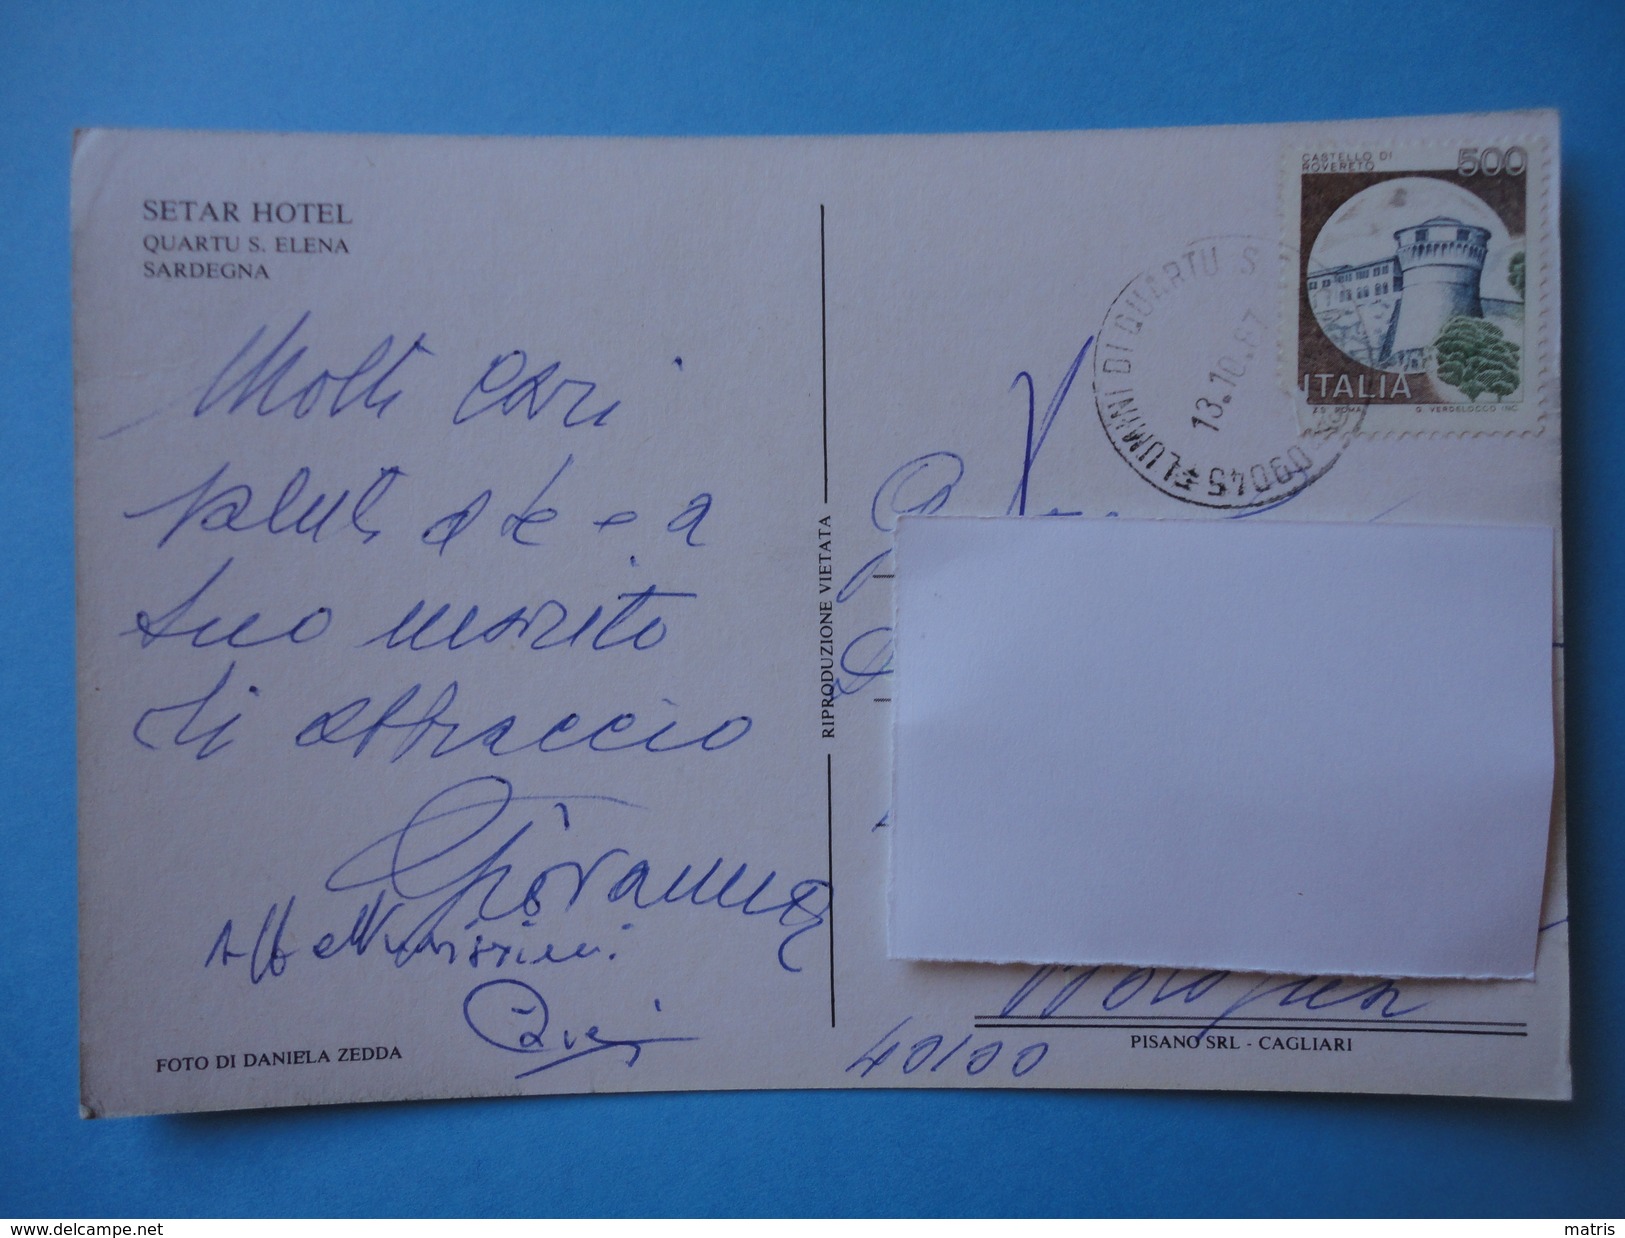 SETAR HOTEL
QUARTU S. ELENA
SARDEGNA
Molti cari
saluti a te e a
tuo marito
ti abbraccio
Giovanna
Affettuosissimi
FOTO DI DANIELA ZEDDA
RIPRODUZIONE VIETATA
CASTELLO DI
ROVERETO
500
ITALIA
I.P.S. ROMA
G. VERDELOCCO INC.
09045 FLUMINI DI QUARTU S
13.10.87
Bologna
40100
PISANO SRL - CAGLIARI
http://www.delcampe.net
matris